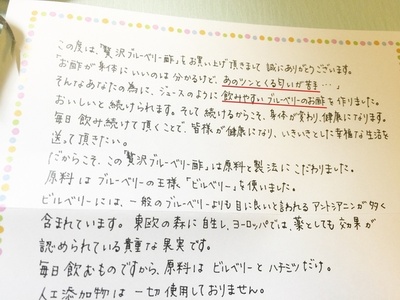 この度は、「贅沢ブルーベリー酢」をお買い上げ頂きまして 誠にありがとうございます。
「お酢が身体にいいのは 分かるけど、あのツンとくる匂いが苦手…」
そんなあなたの為に、ジュースのように飲みやすいブルーベリーのお酢を作りました。
おいしいと続けられます。そして続けるからこそ、身体が変わり、健康になります。
毎日飲み続けて頂くことで、皆様が健康になり、いきいきとした幸福な生活を
送って頂きたい。
だからこそ、この「贅沢ブルーベリー酢」は原料と製法にこだわりました。
原料は ブルーベリーの王様、「ビルベリー」を使いました。
ビルベリーには、一般のブルーベリーよりも目に良いと言われる アントシアニンが多く
含まれています。東欧の森に自生し、ヨーロッパでは、薬としても 効果が
認められている貴重な果実です。
毎日飲むものですから、原料は ビルベリーと ハチミツだけ。
人工添加物は 一切使用しておりません。